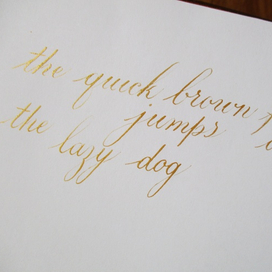 the quick brown
jumps
the lazy dog